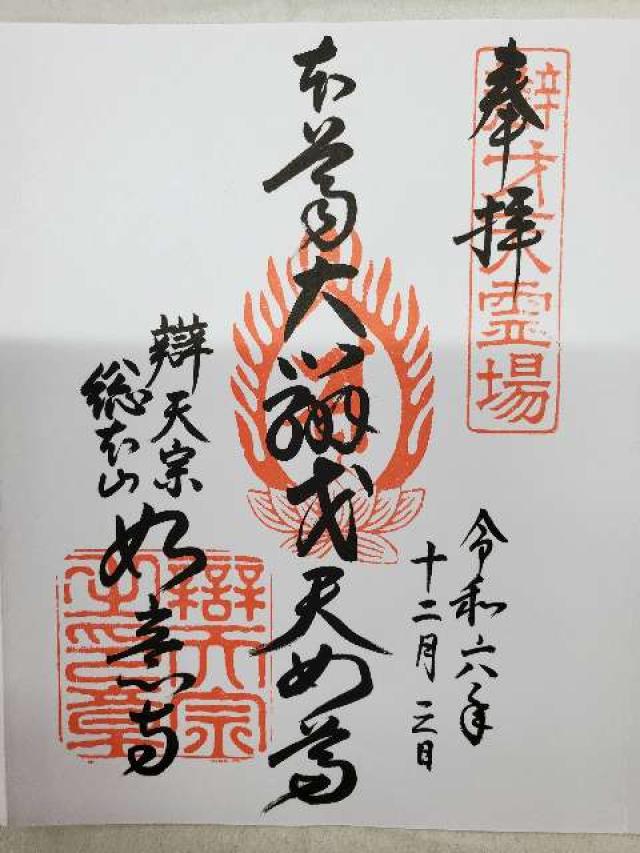 奉拝
辯才天霊場
令和六年
十二月三日
本尊大辯才天女尊
辯天宗
総本山
如意寺
辯天宗